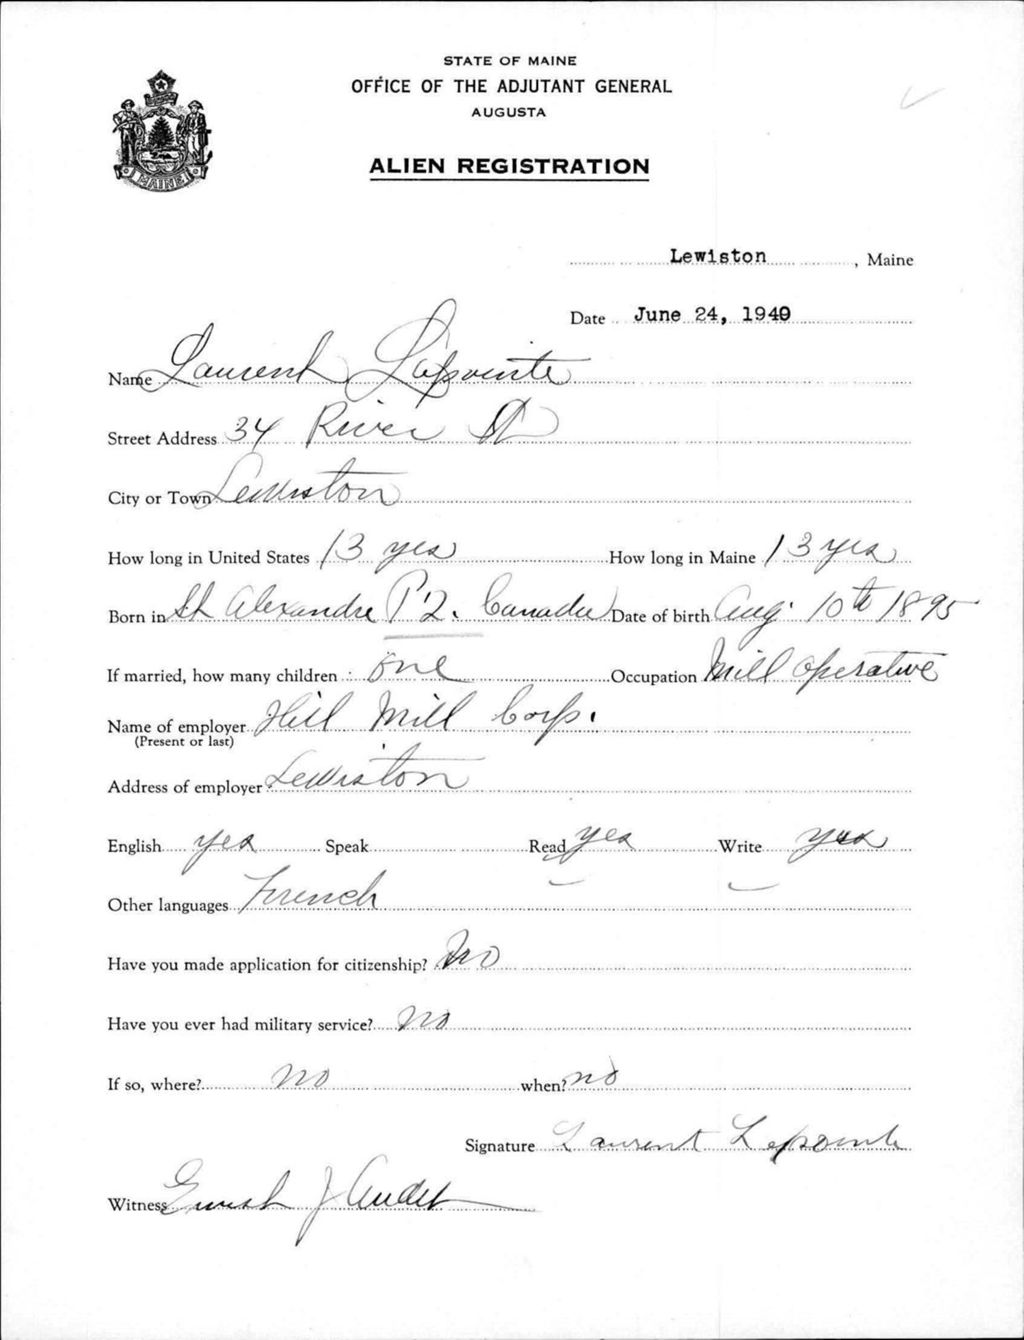 STATE OF MAINE
OFFICE OF THE ADJUTANT GENERAL
AUGUSTA
ALIEN REGISTRATION
MAINE
Lewiston, Maine
Date June 24, 1940
Name Laurent Lapointe
Street Address 34 River St
City or Town Lewiston
How long in United States 13 yrs How long in Maine 13 yrs
Born in St Alexandre P.Q. Canada Date of birth Aug. 10th 1895
If married, how many children one Occupation Mill Operative
Name of employer Hill Mill Corp.
(Present or last)
Address of employer Lewiston
English yes Speak Read yes Write yes
Other languages French
Have you made application for citizenship? No
Have you ever had military service? no
If so, where? no when? no
Signature Laurent Lapointe
Witness J Audet